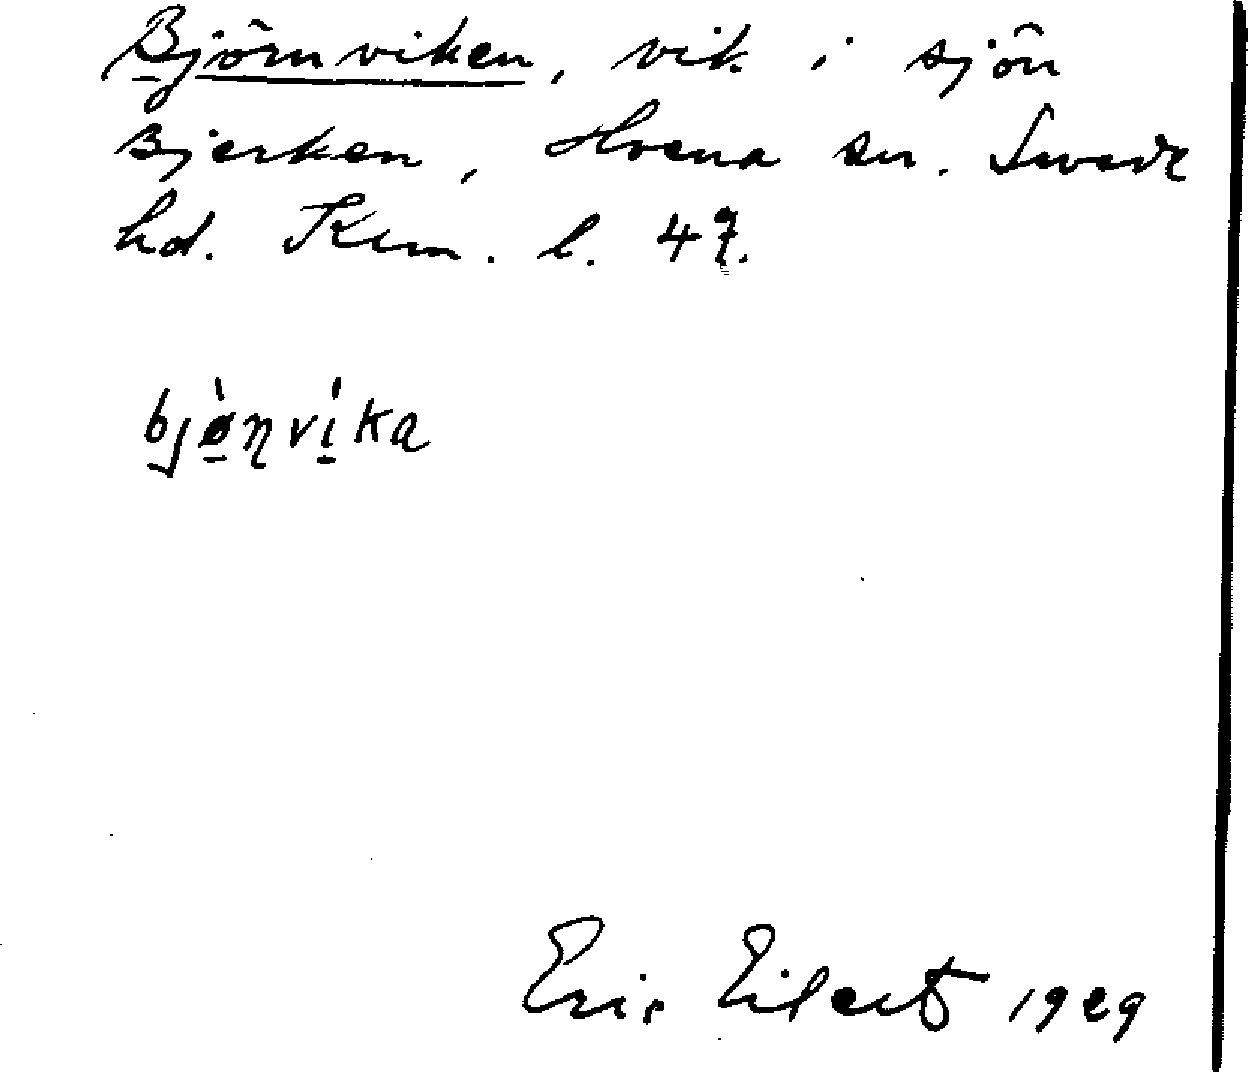 Björnviken, vik i sjön
Bjerken, Hvena sn. Sevede
hd. Klm. l. 47.
bjønvika
Eric Eilert 1929